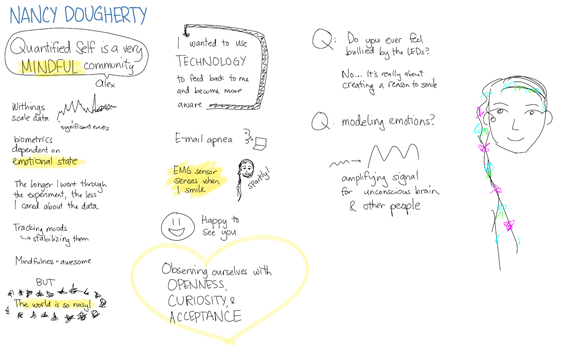 NANCY DOUGHERTY
Quantified Self is a very
MINDFUL community
alex
Withings
scale data
significant events
biometrics
dependent on
emotional state
The longer I went through
the experiment, the less
I cared about the data
Tracking moods
stabilizing them
Mindfulness = awesome
BUT
The world is so noisy!
I wanted to use
TECHNOLOGY
to feed back to me
and become more
aware
E-mail apnea
EMG sensor
senses when
I smile
sparkly!
Happy to
see you
Observing ourselves with
OPENNESS,
CURIOSITY, &
ACCEPTANCE
Q: Do you ever feel
bullied by the LEDs?
No... it's really about
creating a reason to smile
Q: modeling emotions?
amplifying signal
for unconscious brain
& other people